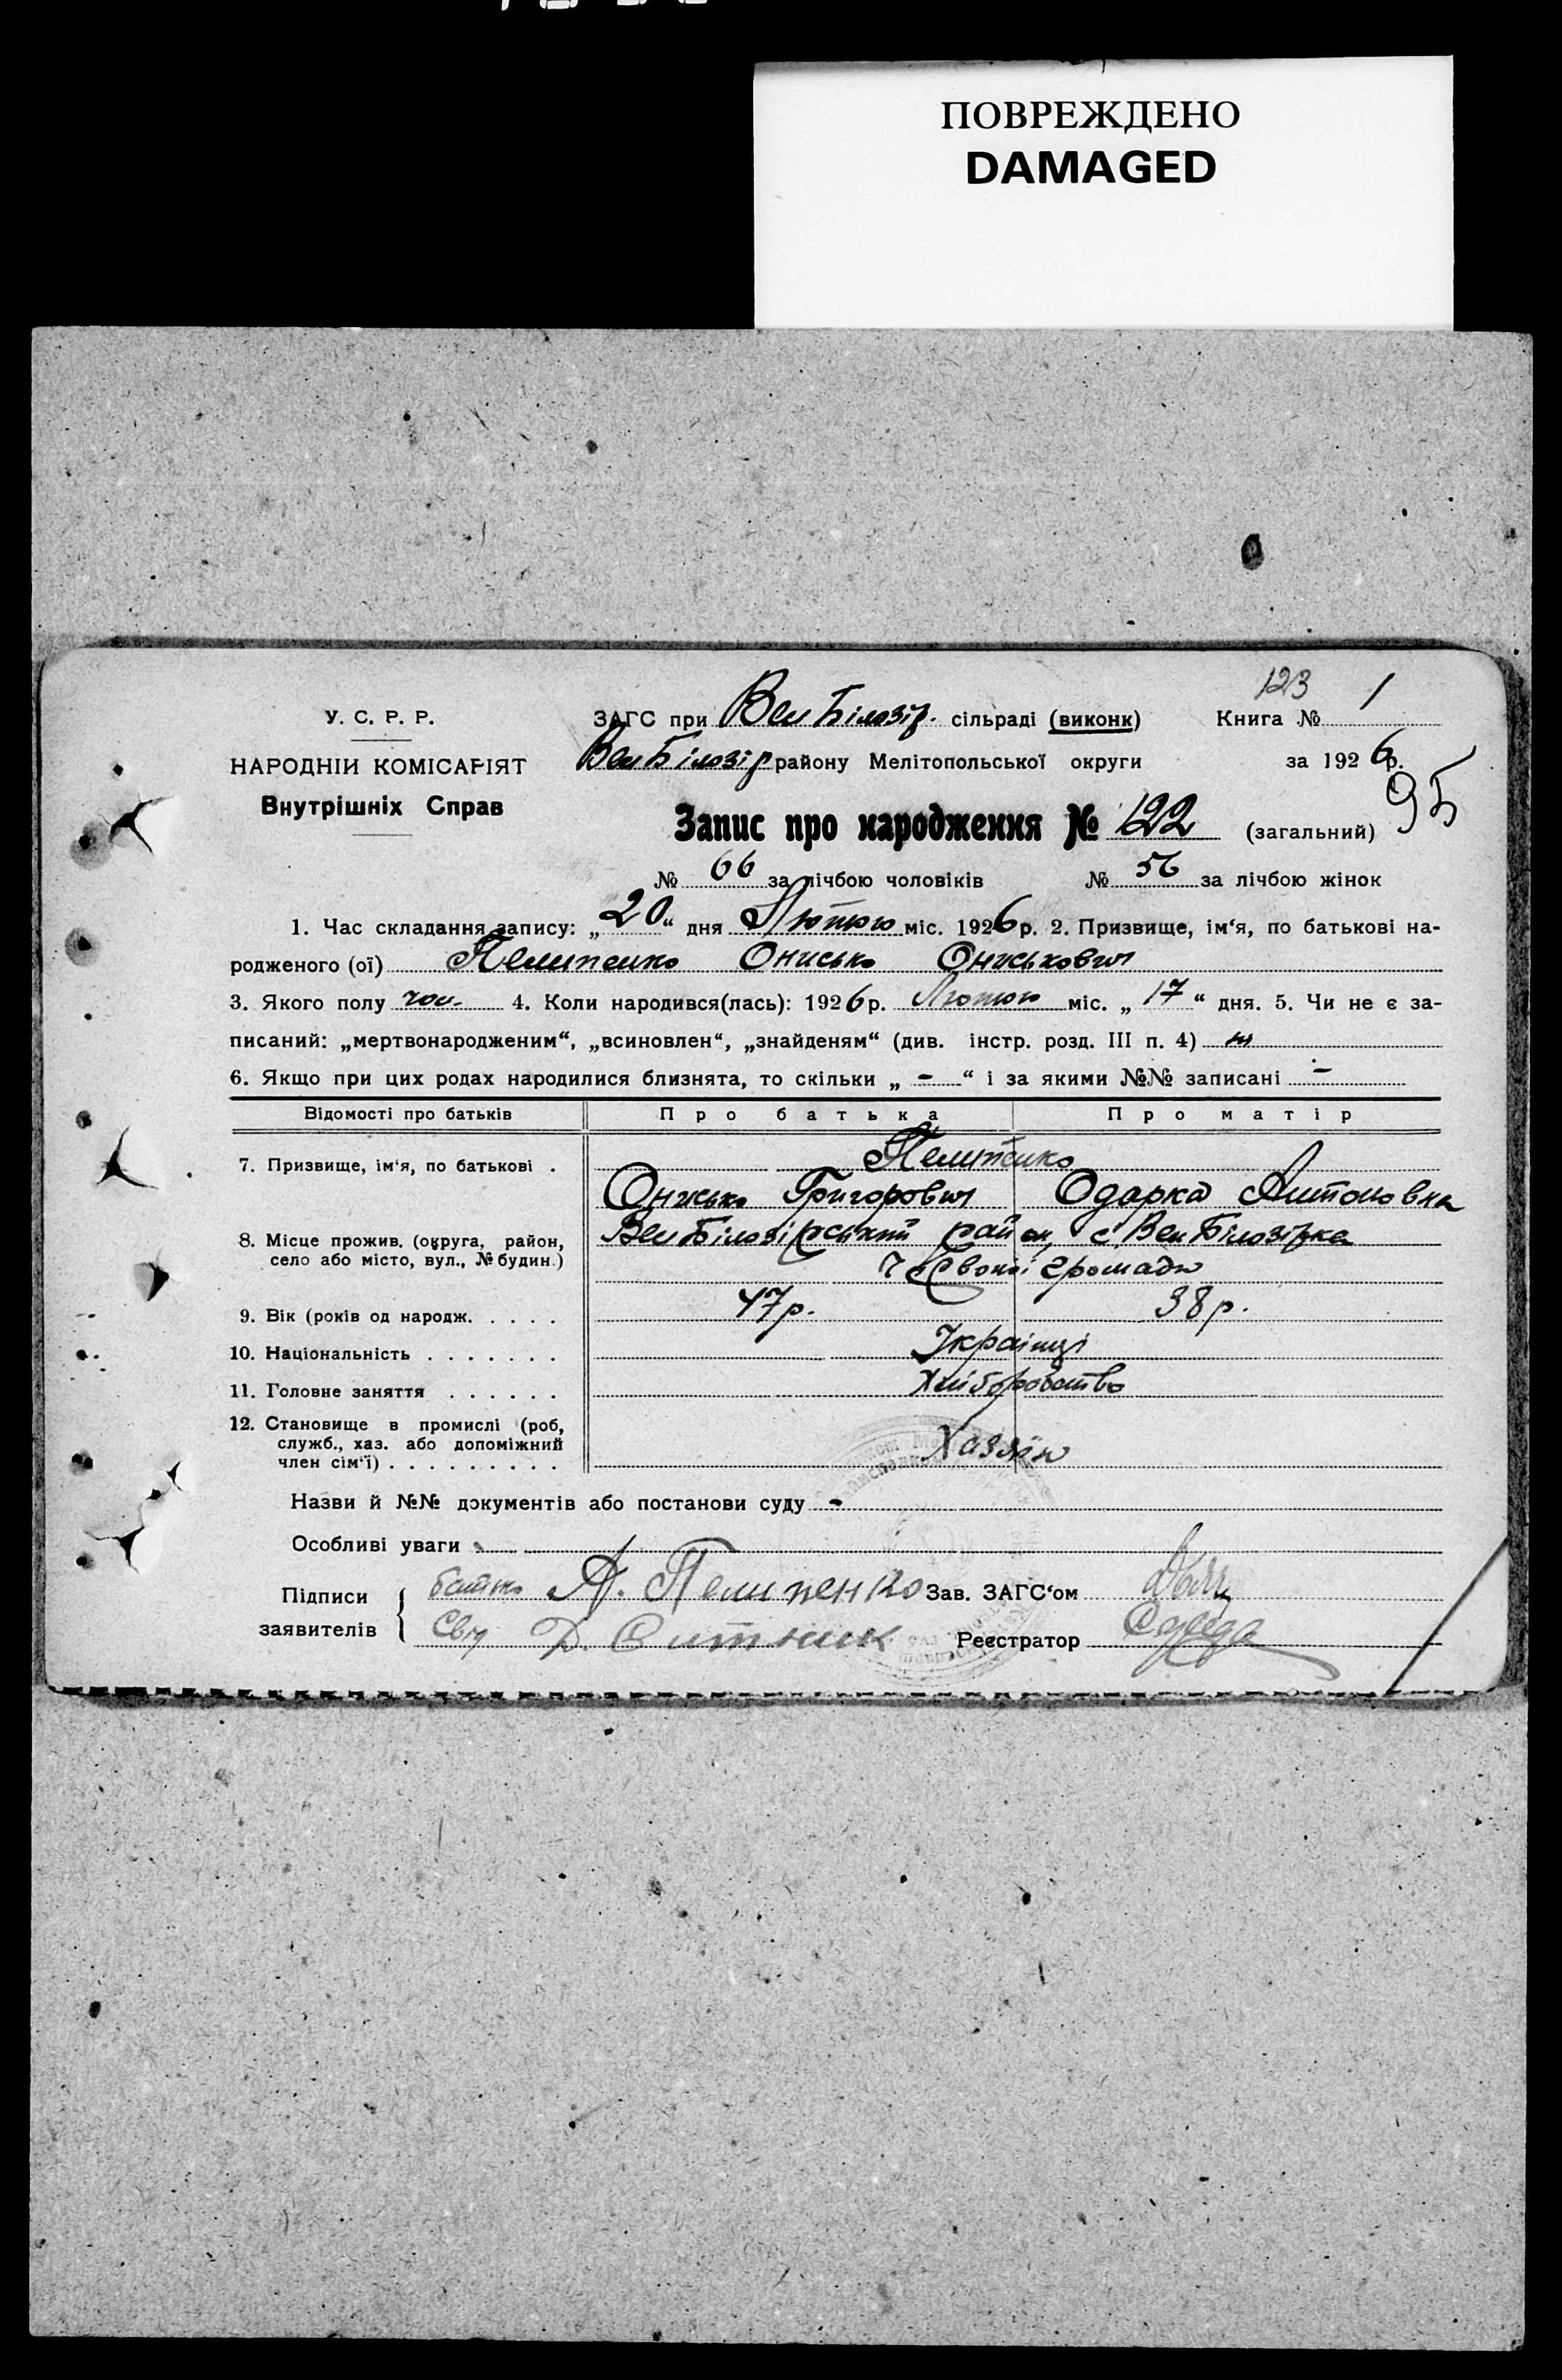 ПОВРЕЖДЕНО
DAMAGED
123
У. С. Р. Р.
ЗАГС при Вел Білозір. сільраді (виконк)
Книга № 1
НАРОДНІЙ КОМІСАРІЯТ
Вел Білозір району Мелітопольської округи
за 1926 р.
Внутрішніх Справ
95
Запис про народження № 122 (загальний)
№ 66 за лічбою чоловіків № 56 за лічбою жінок
1. Час складання запису: „20“ дня Лютого міс. 1926 р. 2. Призвище, ім‘я, по батькові на-
родженого (ої) Пелипенко Онисько Ониськович
3. Якого полу чол. 4. Коли народився(лась): 1926 р. Лютого міс. „17“ дня. 5. Чи не є за-
писаний: „мертвонародженим“, „всиновлен“, „знайденям“ (див. інстр. розд. III п. 4) ні
6. Якщо при цих родах народилися близнята, то скільки „ - “ і за якими №№ записані -
Відомості про батьків
Про батька
Про матір
7. Призвище, ім‘я, по батькові .
Пелипенко
Онисько Григорович
Одарка Антоновна
8. Місце прожив. (округа, район,
село або місто, вул., № будин.)
Вел Білозірський район, с. Вел Білозірка
громади
9. Вік (років од народж. . . . .
47 р.
38 р.
10. Національність . . . . . . .
Українці
11. Головне заняття . . . . . .
Хліборобство
12. Становище в промислі (роб,
служб., хаз. або допоміжний
член сім‘ї) . . . . . . . . .
Хазяїн
Назви й №№ документів або постанови суду -
Особливі уваги
Підписи
заявителів
батько А. Пелипенко
Зав. ЗАГС‘ом
Д. Ситник
Реєстратор